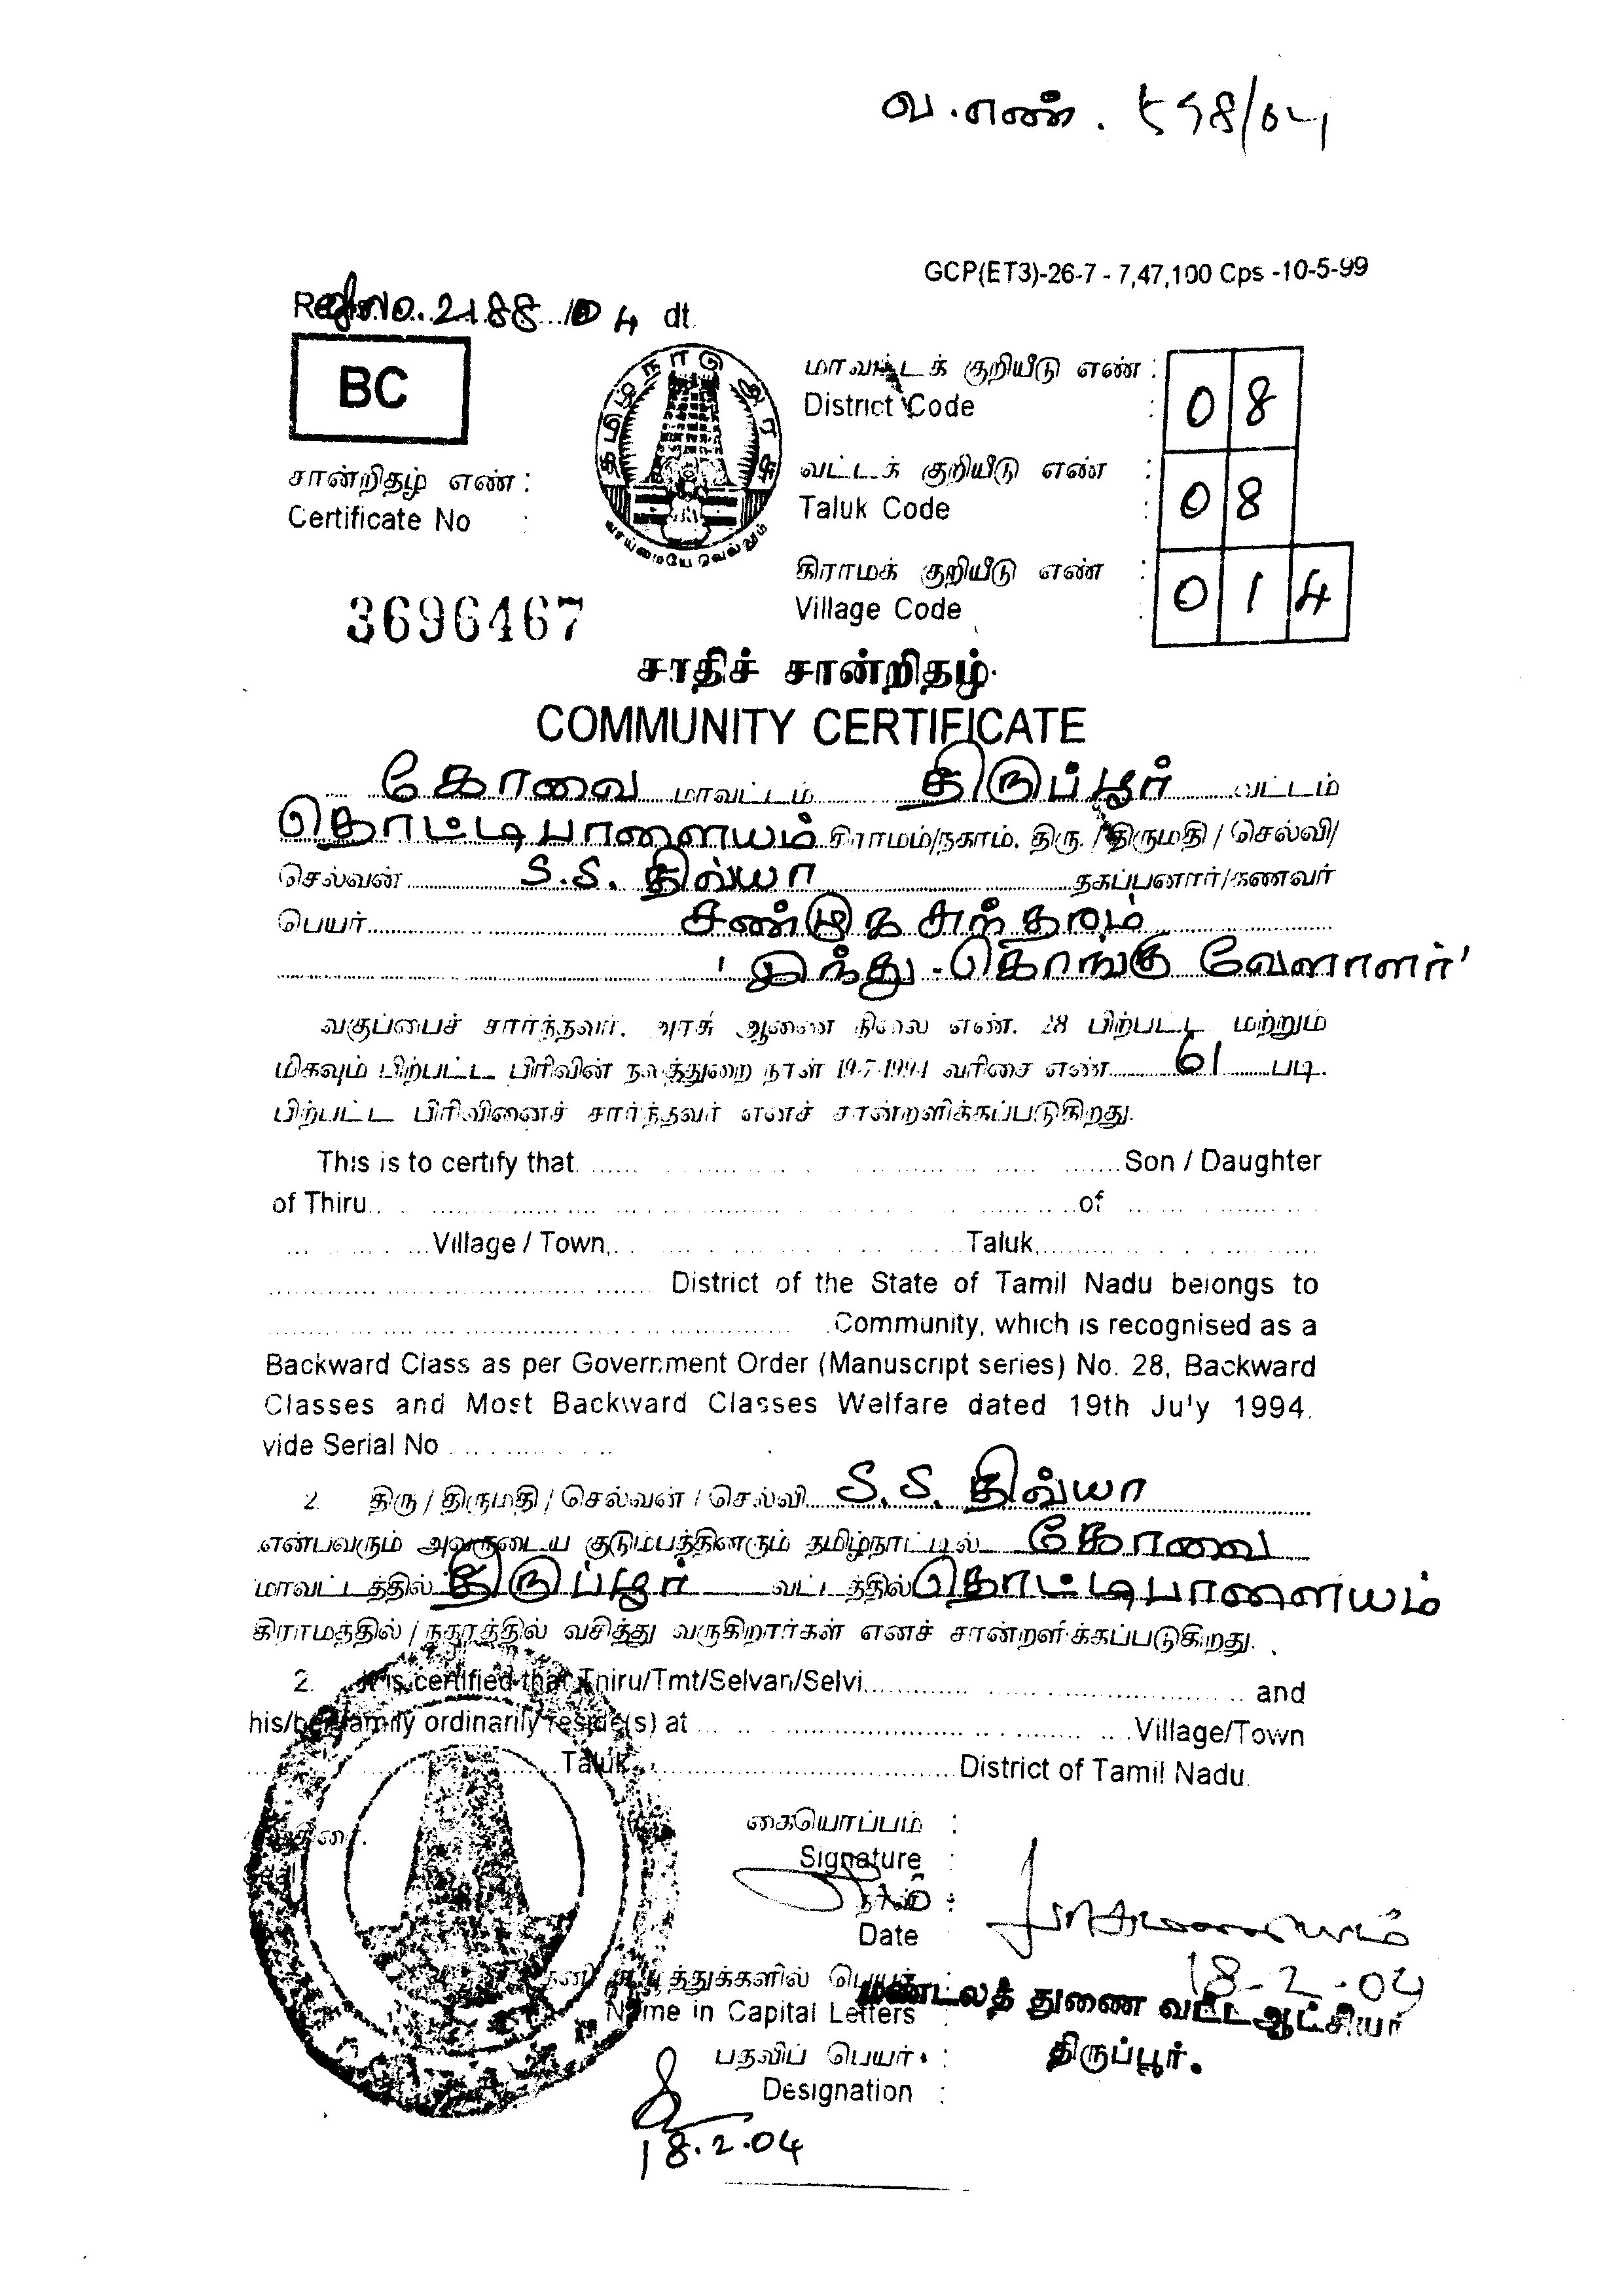 வ.எண். 598/04
GCP(ET3)-26-7 - 7,47,100 Cps -10-5-99
2188/04 dt.
BC
தமிழ்நாடு அரசு
வாய்மையே வெல்லும்
மாவட்டக் குறியீடு எண் :
District Code : 08
வட்டக் குறியீடு எண் :
Taluk Code : 08
கிராமக் குறியீடு எண் :
Village Code : 014
சான்றிதழ் எண் :
Certificate No :
3696467
சாதிச் சான்றிதழ்
COMMUNITY CERTIFICATE
கோவை மாவட்டம் திருப்பூர் வட்டம்
தொட்டிபாளையம் கிராமம்/நகரம். திரு. / திருமதி / செல்வி/
செல்வன் S.S. திவ்யா தகப்பனார்/கணவர்
பெயர் சண்முக சுந்தரம்
'இந்து - கொங்கு வேளாளர்'
வகுப்பைச் சார்ந்தவர். அரசு ஆணை நிலை எண். 28 பிற்பட்ட மற்றும்
மிகவும் பிற்பட்ட பிரிவின் நலத்துறை நாள் 19-7-1994 வரிசை எண் 61 படி.
பிற்பட்ட பிரிவினைச் சார்ந்தவர் எனச் சான்றளிக்கப்படுகிறது.
This is to certify that Son / Daughter
of Thiru of
Village / Town, Taluk,
District of the State of Tamil Nadu belongs to
Community, which is recognised as a
Backward Class as per Government Order (Manuscript series) No. 28, Backward
Classes and Most Backward Classes Welfare dated 19th July 1994.
vide Serial No
2. திரு / திருமதி / செல்வன் / செல்வி S.S. திவ்யா
என்பவரும் அவருடைய குடும்பத்தினரும் தமிழ்நாட்டில் கோவை
மாவட்டத்தில் திருப்பூர் வட்டத்தில் தொட்டிபாளையம்
கிராமத்தில் / நகரத்தில் வசித்து வருகிறார்கள் எனச் சான்றளிக்கப்படுகிறது.
2. It is certified that Thiru/Tmt/Selvan/Selvi and
his/her family ordinarily reside(s) at Village/Town
Taluk District of Tamil Nadu.
கையொப்பம் :
Signature :
நாள் :
Date
18-2-04
பெயர் :
Name in Capital Letters
மண்டலத் துணை வட்டஆட்சியர்
திருப்பூர்.
பதவிப் பெயர் :
Designation :
18.2.04